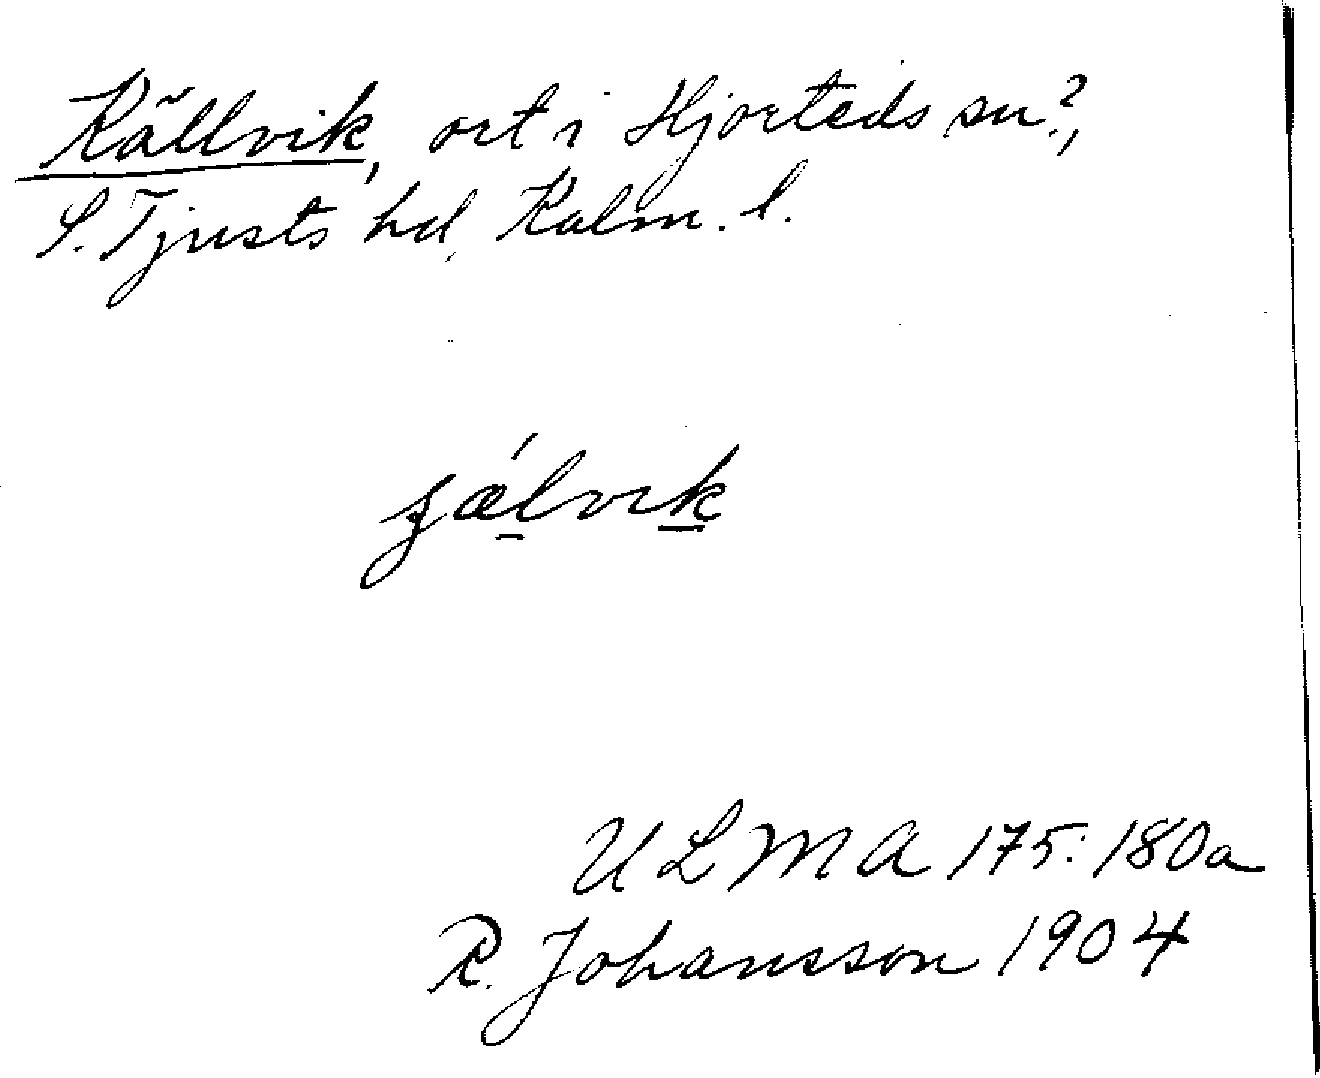 Källvik, ort i Hjorteds sn?,
S. Tjusts hd, Kalm. l.
ʂǽlvik
ULMA 175:180a
R. Johansson 1904